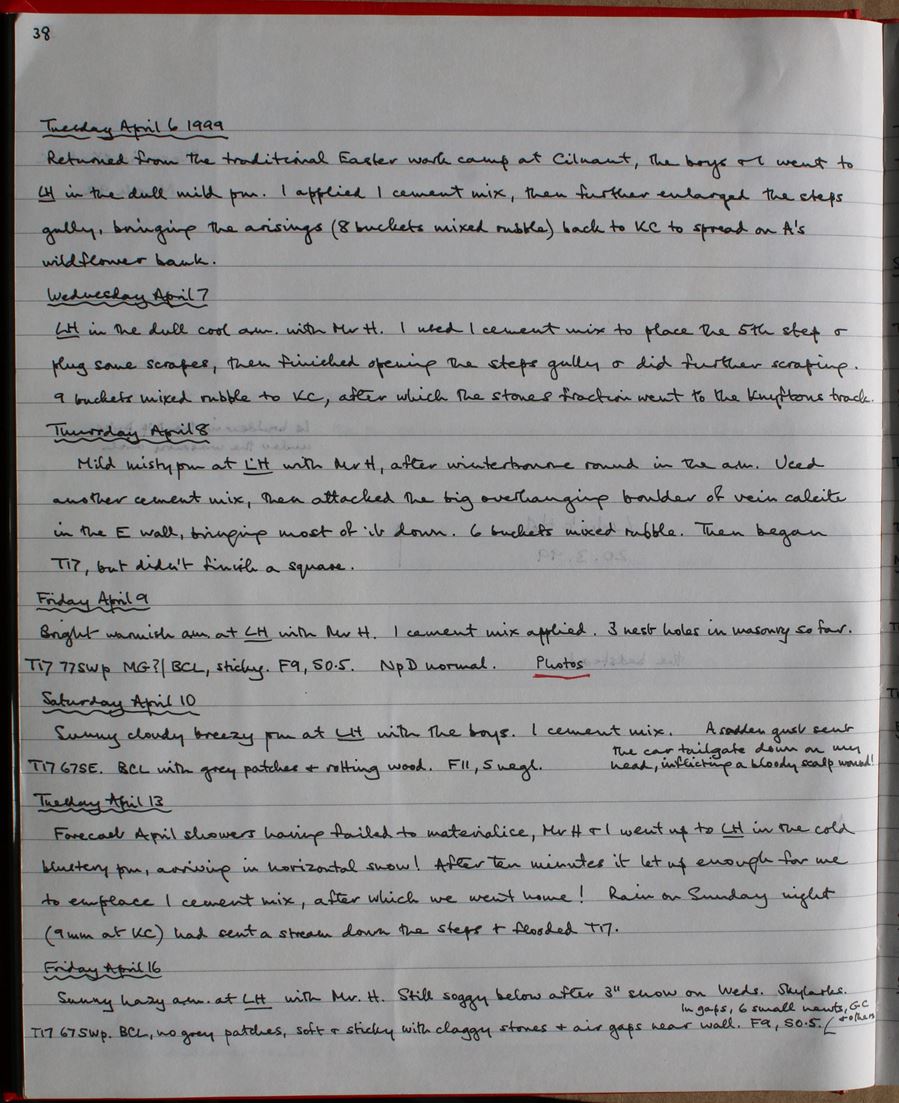 38
Tuesday April 6 1999
Returned from the traditional Easter work camp at Cilnant, the boys & I went to
LH in the dull mild pm. I applied 1 cement mix, then further enlarged the steps
gully, bringing the arisings (8 buckets mixed rubble) back to KC to spread on A's
wildflower bank.
Wednesday April 7
LH in the dull cool am. with Mr H. I used 1 cement mix to place the 5th step &
plug some scrapes, then finished opening the steps gully & did further scraping.
9 buckets mixed rubble to KC, after which the stones fraction went to the Knuftons track.
Thursday April 8
Mild misty pm at LH with Mr H, after winterbourne round in the am. Used
another cement mix, then attacked the big overhanging boulder of vein calcite
in the E wall, bringing most of it down. 6 buckets mixed rubble. Then began
T17, but didn't finish a square.
Friday April 9
Bright warmish am at LH with Mr H. 1 cement mix applied. 3 nest holes in masonry so far.
T17 77SWp MG?/BCL, sticky. F9, S0.5. NpD normal. Photos
Saturday April 10
Sunny cloudy breezy pm at LH with the boys. 1 cement mix. A sudden gust sent
the car tailgate down on my
T17 67SE. BCL with grey patches + rotting wood. F11, S negl. head, inflicting a bloody scalp wound!
Tuesday April 13
Forecast April showers having failed to materialise, Mr H & I went up to LH in the cold
blustery pm, arriving in horizontal snow! After ten minutes it let up enough for me
to emplace 1 cement mix, after which we went home! Rain on Sunday night
(9mm at KC) had sent a stream down the steps + flooded T17.
Friday April 16
Sunny hazy am. at LH with Mr. H. Still soggy below after 3" snow on Weds. Skylarks.
In gaps, 6 small newts, GC
T17 67SWp. BCL, no grey patches, soft & sticky with claggy stones + air gaps near wall. F9, S0.5. + others